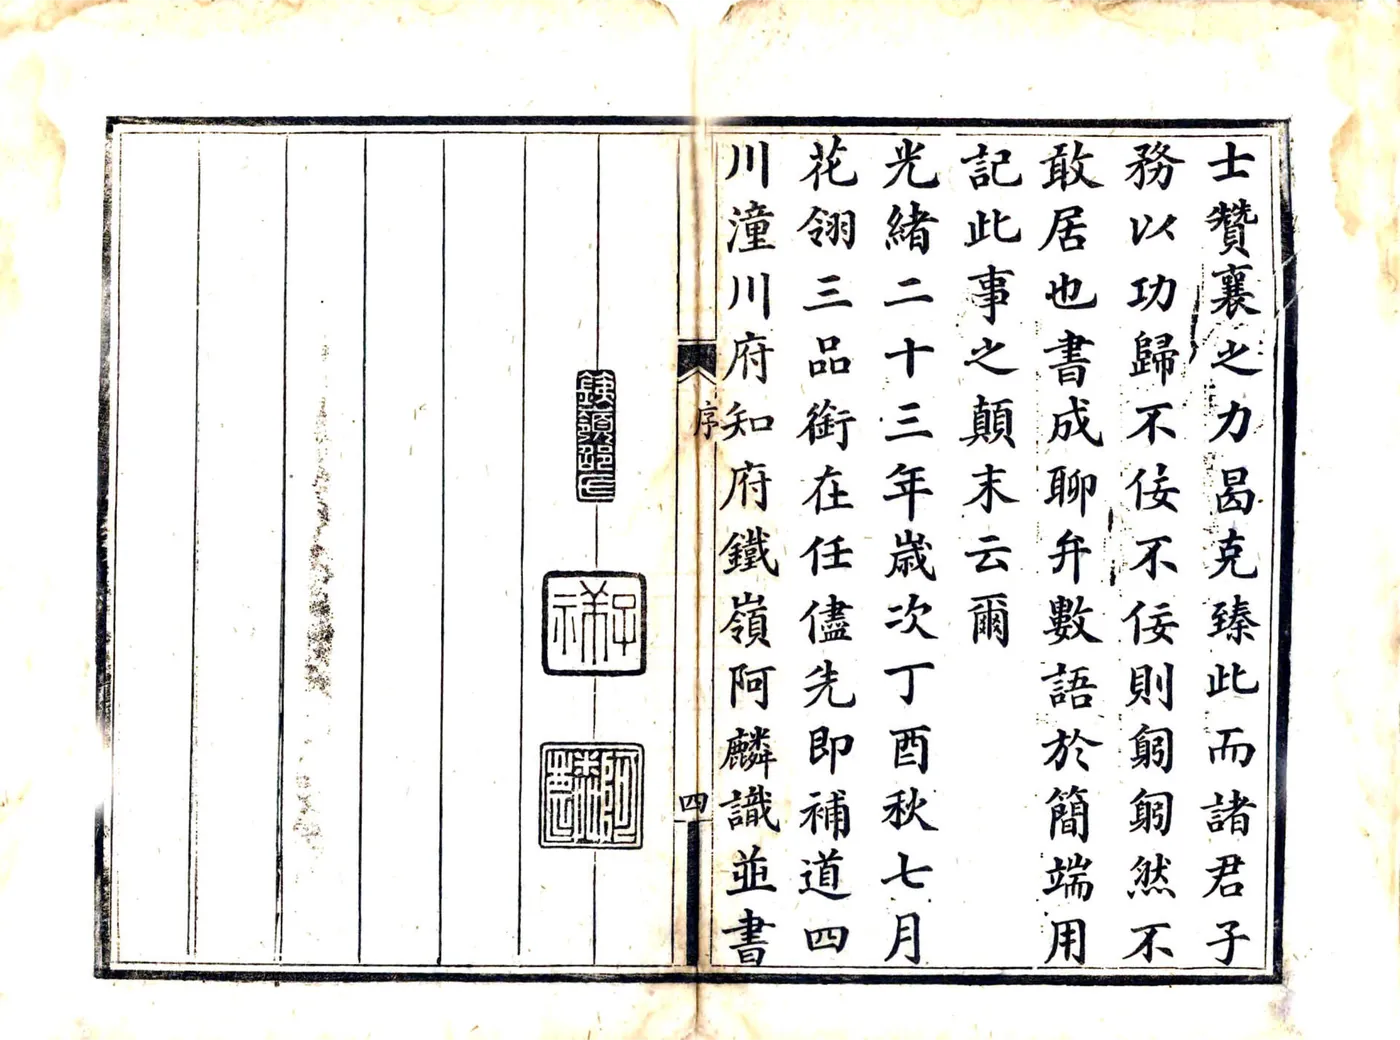 士贊襄之力曷克臻此而諸君子
務以功歸不佞不佞則躬躬然不
敢居也書成聊弁數語於簡端用
記此事之顛末云爾
光緒二十三年歲次丁酉秋七月
花翎三品銜在任儘先即補道四
川潼川府知府鐵嶺阿麟識並書
序
四
鐵嶺邵氏
子祥
阿麟